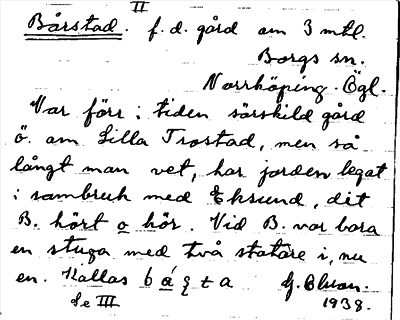 II
Bårstad. f. d. gård om 3 mtl.
Borgs sn.
Norrköping. Ögl.
Var förr i tiden särskild gård
ö. om Lilla Trostad, men så
långt man vet, har jorden legat
i sambruk med Eksund, dit
B. hört o hör. Vid B. var bara
en stuga med två statare i, nu
en. Kallas
Se III
1938.